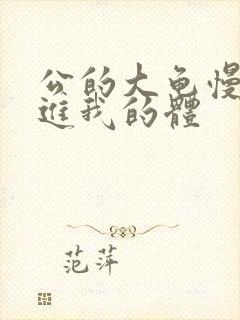 公的大龟慢
进我的體
范萍